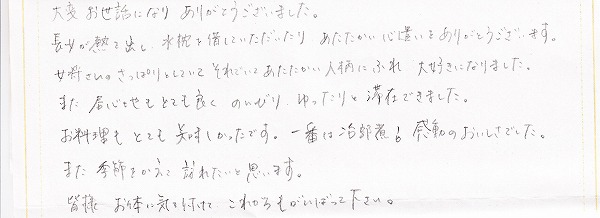 大変 お世話になり ありがとうございました。
長女が熱を出し、水枕を借していただいたり あたたかい心遣いをありがとうございます。
女将さんの さっぱりとしていて それでいてあたたかい人柄にふれ 大好きになりました。
また 居心地もとても良く のんびり ゆったりと 滞在できました。
お料理も とても美味しかったです。一番は治部煮！感動のおいしさでした。
また 季節をかえて 訪れたいと思います。
皆様 お体に気を付けて これからもがんばって下さい。